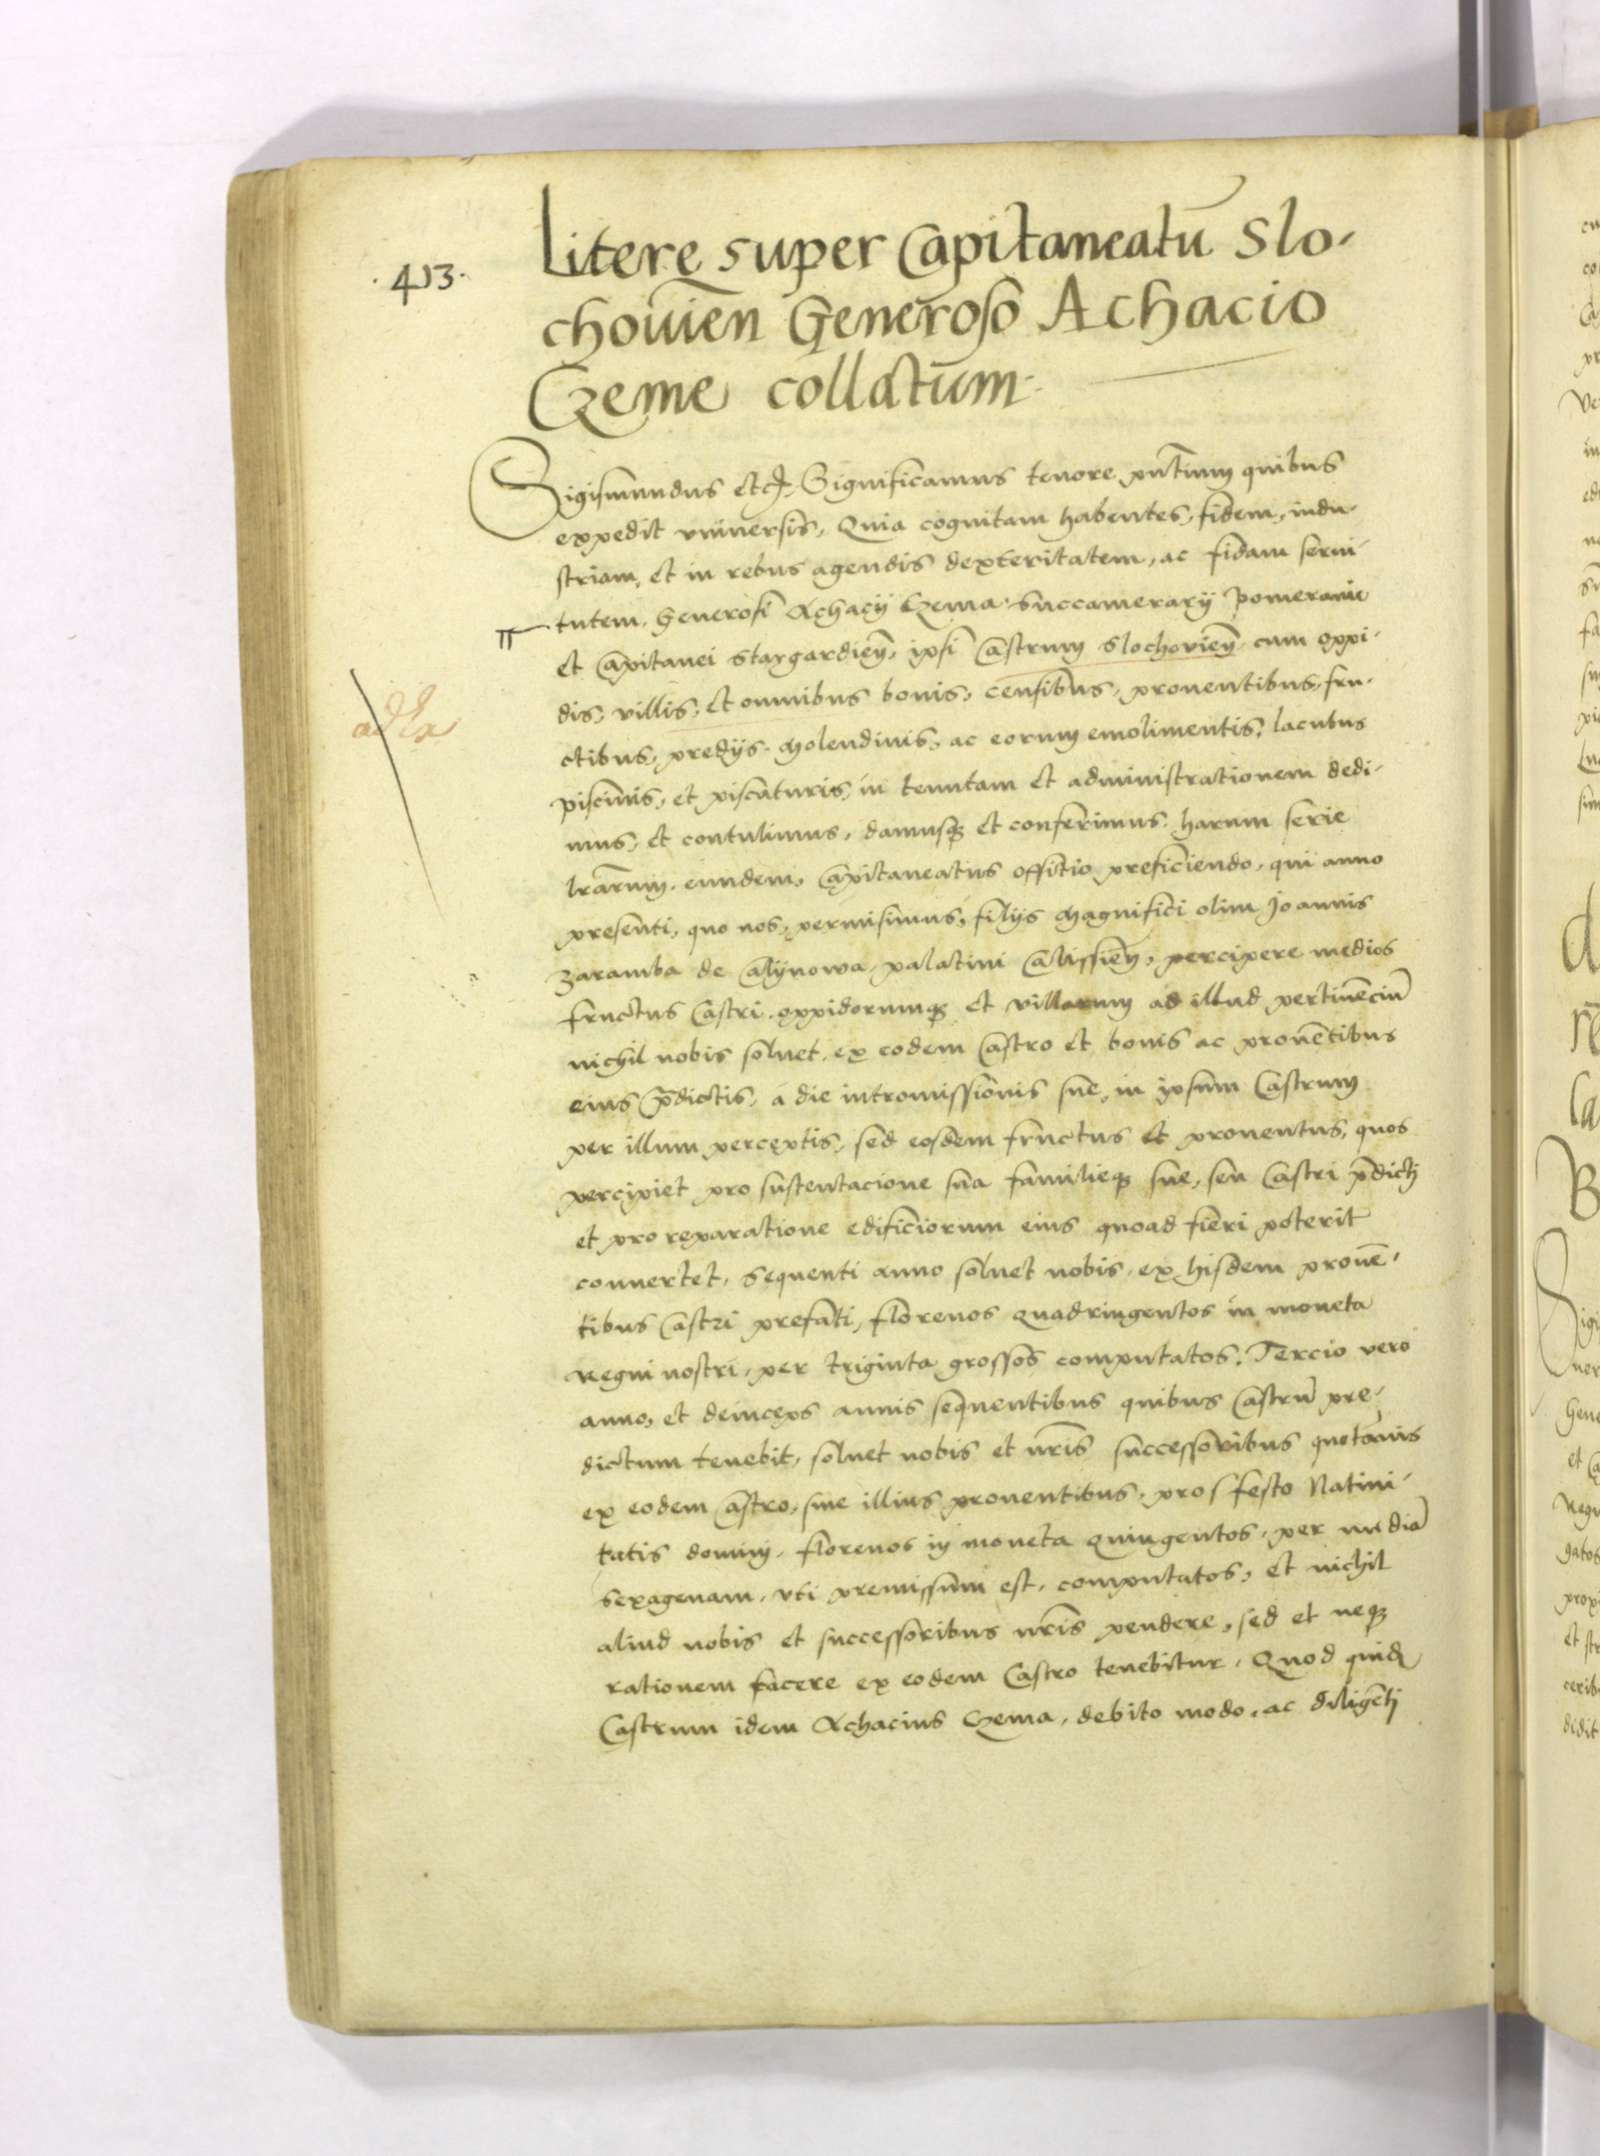 .413.
Litere super Capitaneatū Slo-
chouieñ Generoso Achacio
Czeme collatum.
Sigismundus etc. Significamus tenore pñtium quibus
expedit vniuersis, Quia cognitam habentes, fidem, indu-
striam, et in rebus agendis dexteritatem, ac fidam serui-
tutem, Generosi Achacij Czema Succamerarij Pomeranie
et Capitanei Stargardieñ, ipsi Castrum Slochovieñ cum oppi-
dis, villis, et omnibus bonis, censibus, prouentibus, fru-
ctibus, predijs, Molendinis, ac eorum emolimentis, lacubus
piscinis, et piscaturis, in tenutam et administrationem dedi-
mus, et contulimus, damusq et conferimus harum serie
lrarum, eundem, Capitaneatus offitio preficiendo, qui anno
presenti, quo nos, permisimus, filijs Magnifici olim Joannis
Zaramba de Calijnowa, palatini Calissieñ, percipere medios
fructus Castri, oppidorumq et villarum ad illud pertinēciū
nichil nobis soluet, ex eodem Castro et bonis ac prouētibus
eius p̄dictis, a die intromissionis sue, in ipsum Castrum
per illum perceptis, sed eosdem fructus et prouentus, quos
percipiet pro sustentacione sua familieq sue, seu Castri p̄dicti
et pro reparatione edificiorum eius quoad fieri poterit
conuertet, Sequenti anno soluet nobis, ex hisdem prouē-
tibus Castri prefati, florenos Quadringentos in moneta
Regni nostri, per triginta grossos computatos. Tercio vero
anno, et deinceps annis sequentibus quibus Castrū pre-
dictum tenebit, soluet nobis et nr̄is successoribus quotānis
ex eodem Castro, siue illius prouentibus, pro festo Natiui-
tatis domini, florenos in moneta Quingentos, per mediā
Sexagenam, vti premissum est, computatos, et nichil
aliud nobis et successoribus nr̄is pendere, sed et neq
rationem facere ex eodem Castro tenebitur, Quod quidē
Castrum idem Achacius Czema, debito modo, ac diligēti